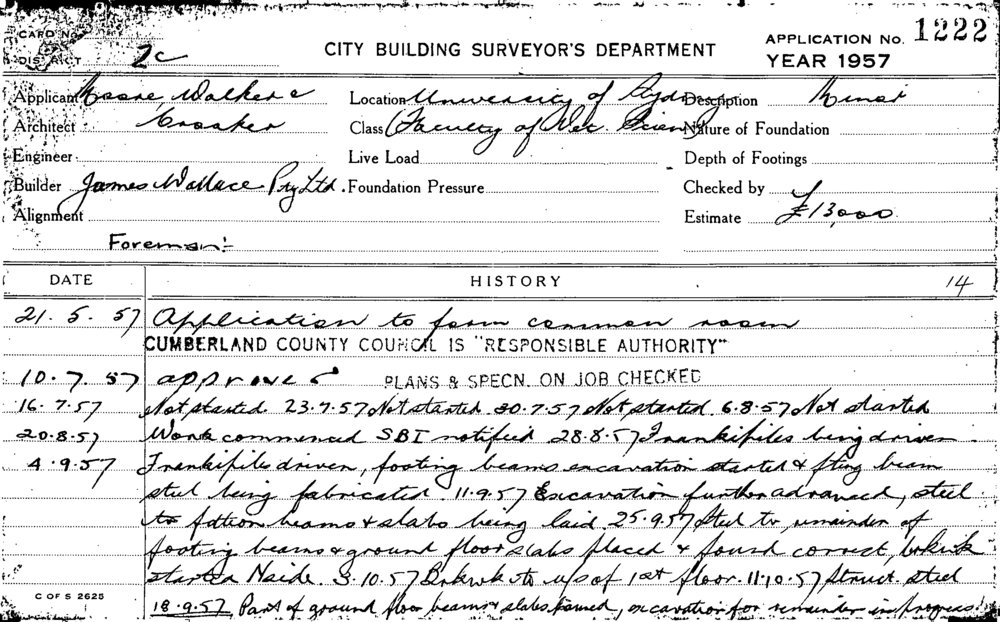 CARD No.
DISTRICT 2c
CITY BUILDING SURVEYOR'S DEPARTMENT
APPLICATION No. 1222
YEAR 1957
Applicant Moore, Walker &
Location University of Sydney
Description Minor
Architect Croaker
Class (Faculty of Vet. Science)
Nature of Foundation
Engineer
Live Load
Depth of Footings
Builder James Wallace Pty Ltd.
Foundation Pressure
Checked by
Alignment
Estimate £13,000
Foreman:-
DATE HISTORY 14
21. 5. 57 Application to form common room
CUMBERLAND COUNTY COUNCIL IS "RESPONSIBLE AUTHORITY"
10. 7. 57 approved PLANS & SPECN. ON JOB CHECKED
16. 7. 57 Not started. 23.7.57 Not started. 30.7.57 Not started. 6.8.57 Not started
20.8.57 Work commenced SBI notified 28.8.57 Frankipiles being driven.
4.9.57 Frankipiles driven, footing beams excavation started & fting beam
steel being fabricated. 11.9.57 Excavation further advanced, steel
to beams & slabs being laid. 25.9.57 Steel to remainder of
footing beams & ground floor slabs placed & found correct, brkwk
started Nside. 3.10.57 Brkwk to u/s of 1st floor. 11.10.57 Struct. steel
18.9.57 Part of ground floor beams & slabs poured, excavation for remainder in progress.
C OF S 2625